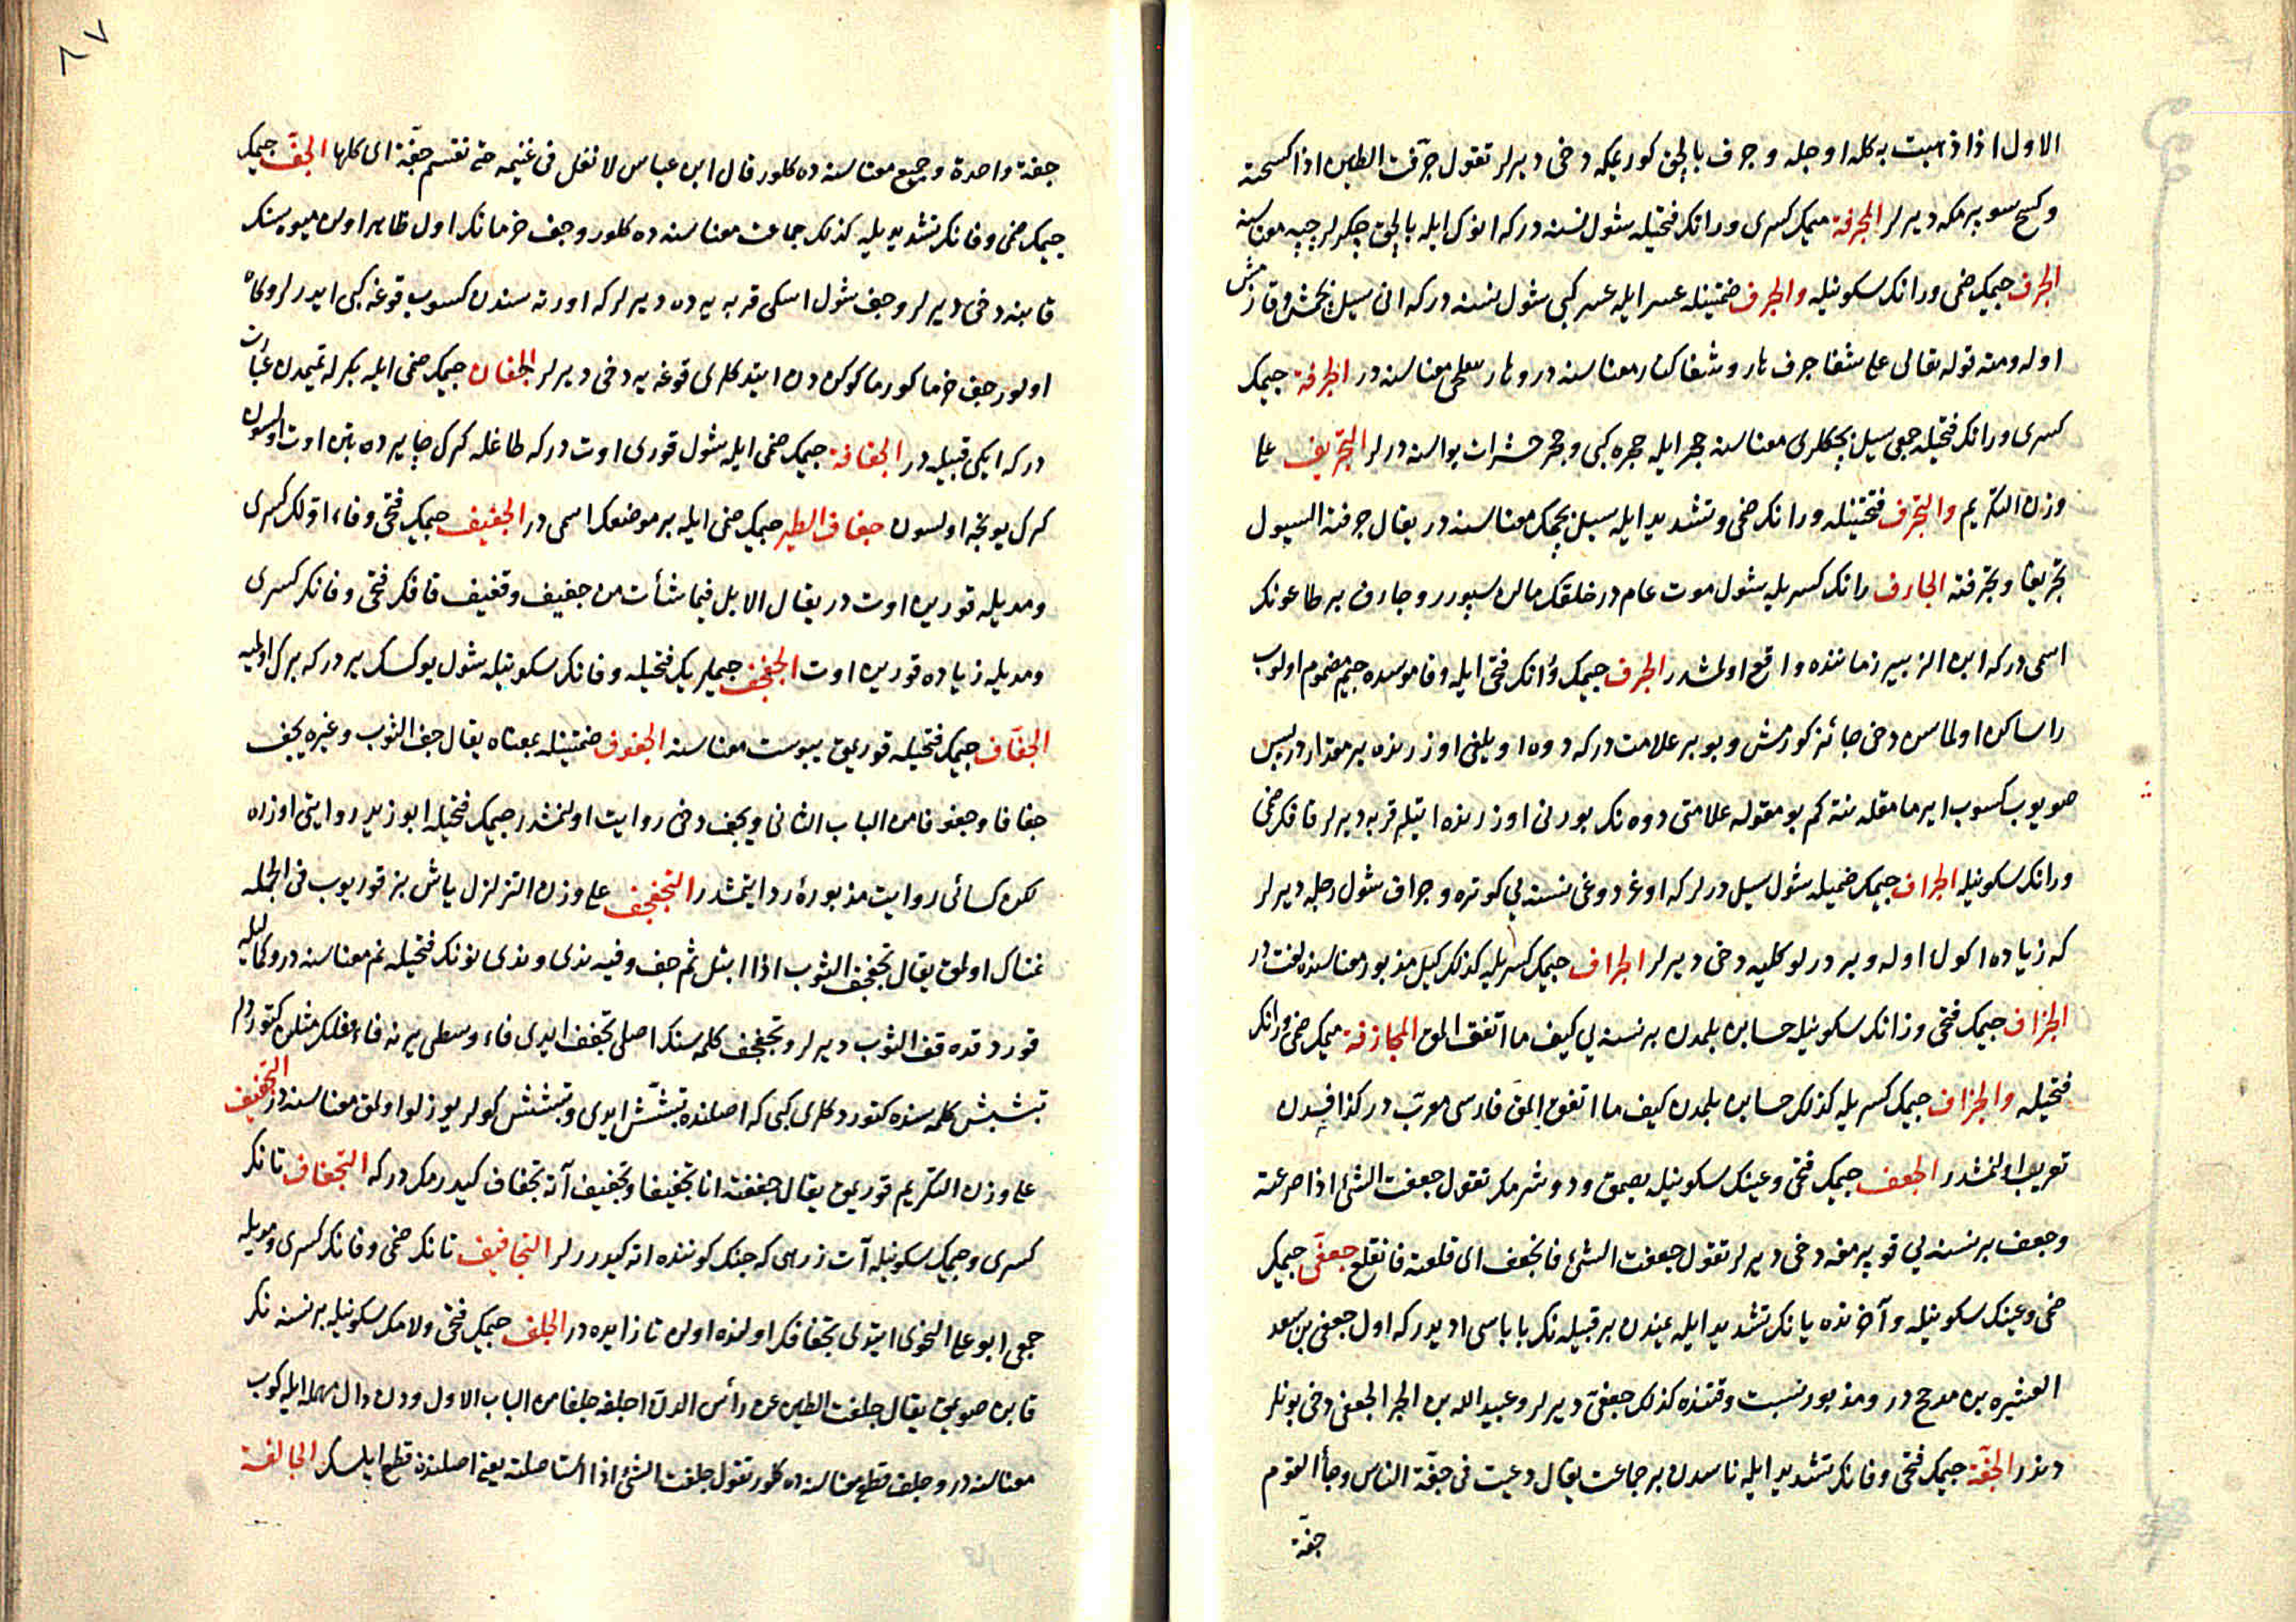 الاول اذا ذهبت به كله او جله و جرف بالچق كوريمكه دخی ديرلر تقول جرفت الطين اذا كسحته
و كسح سوپرمكه ديرلر المجرفة ميمك كسری و رانك فتحيله شول نسنه دركه انوك ايله بالچق چكرلر
الجرف جيمك ضمی و رانك سكونيله والجرف ضمتينله عسر ايله عسر كبی شول نسنه دركه انی سيل
اوله ومنه قوله تعالی علی شفا جرف هار و شفا كنار معناسنه در و هار معناسنه در الجرفة جيمك
كسری و رانك فتحيله جمعی سيل معناسنه جحر ايله جحره كبی و جحر حشرات يواسنه درلر التجريف علی
وزن التكريم والتجرف فتحتينله و رانك ضمی و تشديد ايله سيل معناسنه در يقال جرفته السيول
تجريفا و تجرفته الجارف رانك كسريله شول موت عام در خلقك مالن سپورر و جارف بر طاعونك
اسمی دركه ابن الزبير زماننده واقع اولمشدر الجرف جيمك و رانك فتحی ايله و قاموسده جيم مضموم اولوب
را ساكن اولماسن دخی جائز كورمش و بو بر علامت دركه دوه اويلغی اوزرنده بر مقدار دريسن
صويوب كسوب بو مقوله علامتی دوه نك بورنی اوزرنده ايتسلر قرمه ديرلر قافك ضمی
و رانك سكونيله الجراف جيمك ضميله شول سيل درلر كه اوغردوغی نسنه يی كوتره و جراف شول رجله ديرلر
كه زياده اكول اوله و بر درلو كليه دخی ديرلر الجراف جيمك كسريله كذلك كيل مذبور معناسنده لغت در
الجزاف جيمك فتحی و زانك سكونيله حسابن بلمدن بر نسنه يی كيف ما اتفق المق المجازفة ميمك ضمی و زانك
فتحيله والجزاف جيمك كسريله كذلك حسابن بلمدن كيف ما اتفق المق فارسی معرب در كذافدن
تعريب اولنمشدر الجعف جيمك فتحی و عينك سكونيله يصمق و دوشرمك تقول جعفت الشئ اذا صرعته
و جعف بر نسنه يی قوپرمغه دخی ديرلر تقول جعفت الشئ فانجعف ای قلعته فانقلع جعفی جيمك
ضمی و عينك سكونيله و آخرنده يانك تشديد ايله يمندن بر قبيله نك باباسی اديدر كه اول جعفی بن سعد
العشيره بن مذحج در و مذبوره نسبت وقتنده كذلك جعفی ديرلر و عبيد الله بن الحر الجعفی دخی بونلر
دندر الجفة جيمك فتحی و فانك تشديد ايله ناسدن بر جماعت يقال دعيت فی جفة الناس و جاء القوم
جفة
٨٧
جفة واحدة و جميع معناسنه ده كلور قال ابن عباس لا نفل فی غنيمه حتی تقسم جفة ای كلها الجف جيمك
جيمك ضمی و فانك تشديديله كذلك جماعت معناسنه ده كلور و جف خرمانك اول ظاهر اولن ميوه سنك
قابنه دخی ديرلر و جف شول اسكی قربه يه ده ديرلر كه اورته سندن كسوب قوغه كبی ايدرلر و كاه
اولور جف خرما كوكندن ايتدكلری قوغه يه دخی ديرلر الجفان جيمك ضمی ايله بكرله تميمدن عبارت
دركه ايكی قبيله در الجفافة جيمك ضمی ايله شول قوری اوت دركه طاغله كرك چايرده بتن اوت اولسون
كرك يونجه اولسون جفاف الطير جيمك ضمی ايله بر موضعك اسمی در الجفيف جيمك فتحی و فاء اولك كسری
و مديله قورين اوت در يقال الابل فيما شأت من جفيف و قفيف قافك فتحی و فانك كسری
و مديله زياده قورين اوت الجفجف جيملريك فتحيله و فانك سكونيله شول يوكسك ير دركه
الجفاف جيمك فتحيله قوريمق يبوست معناسنه الجفوف ضمتينله بمعناه يقال جف الثوب و غيره يجف
جفافا و جفوفا من الباب الثانی و يجف دخی روايت اولنمشدر جيمك فتحيله ابو زيد روايتی اوزره
لكن كسائی روايت مذبوره رد ايتمشدر التجفجف علی وزن التزلزل ياش بز قوريوب فی الجمله
نمناك اولمق يقال تجفجف الثوب اذا ابتل ثم جف و فيه ندی و ندی نونك فتحيله نم معناسنه در
قوردقده قف الثوب ديرلر و تجفجف كلمه سنك اصلی تجفف ايدی فاء وسطی يرنه فاء فعلك مثلن كتوردلر
تبشبش كلمه سنده كتوردكلری كبی كه اصلنده تبشش ايدی و تبشبش كولر يوزلو اولمق معناسنه در التجفيف
علی وزن التكريم قوريمق يقال جففته انا تجفيفا و تجفيف آته تجفاف كيدرمك دركه التجفاف تانك
كسری و جيمك سكونيله آت زرهی كه جنك كوننده اته كيدررلر التجافيف تانك ضمی و فانك كسری و مديله
جمعی ابو علی النحوی ايتدی تجفافك اولنده اولن تا زايده در الجلف جيمك فتحی و لامك سكونيله بر نسنه نك
قابن صويمق يقال جلفت الطين عن رأس الدن اجلفه جلفا من الباب الاول و دن دال مهمله ايله كوب
معناسنه در و جلف قطع معناسنه ده كلور تقول جلفت الشئ اذا استأصلته يعنی اصلندن قطع ايلسك الجالفة